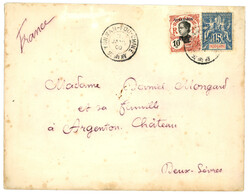 France
Madame Daniel Mongard
et sa famille
à Argenton-Château
Deux-Sèvres
10
15